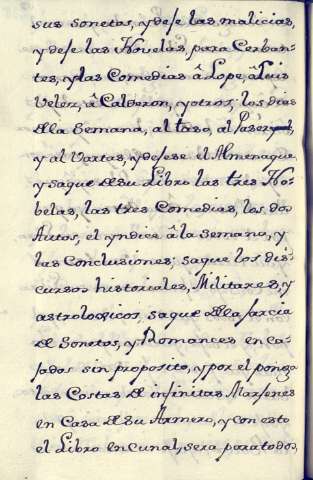 sus sonetos, y dese las malicias,
y dese las Novelas, para Cerban-
tes, y las Comedias â Lope, â Luis
Velez, â Calderon, y otros, los dias
de la Semana, al taso, al
y al Vartas, y desese el Almenaque
y saque de su Libro las tres No-
belas, las tres Comedias, los dos
Autos, el yndice â la semana, y
las Conclusiones; saque los dis-
cursos historiales, Militares, y
astrologicos, saque de la farcia
de Sonetos, y Romances enca-
sados sin proposito, y por el ponga
las Costas de infinitas Marsenes
en Casa de su Armero, y con esto
el Libro en Cunal, sera para todos,